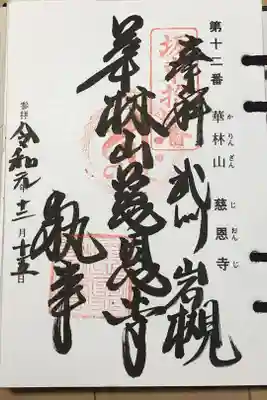 第十二番 華林山 慈恩寺
かりんざん じおんじ
奉拝 武州 岩槻
華林山慈恩寺
執事
参拝 令和元年十二月十五日